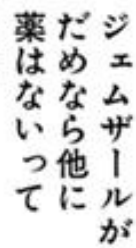 ジェムザールが
だめなら他に
薬はないって